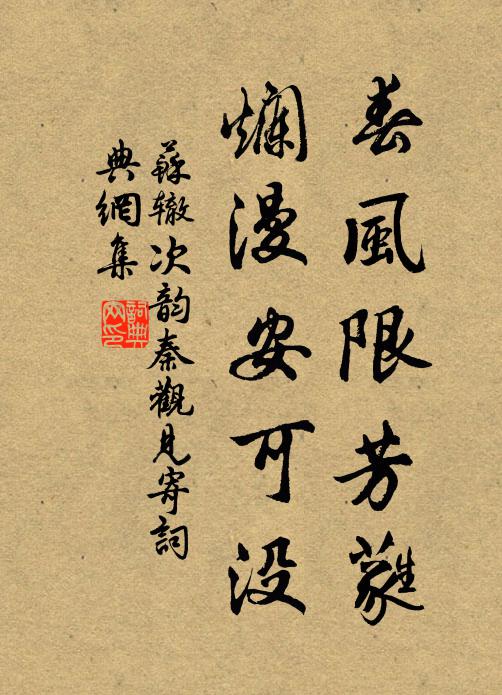 春風限芳蕤
爛漫安可没
蘇轍次韵秦觀見寄詞
典網集
詞典網印